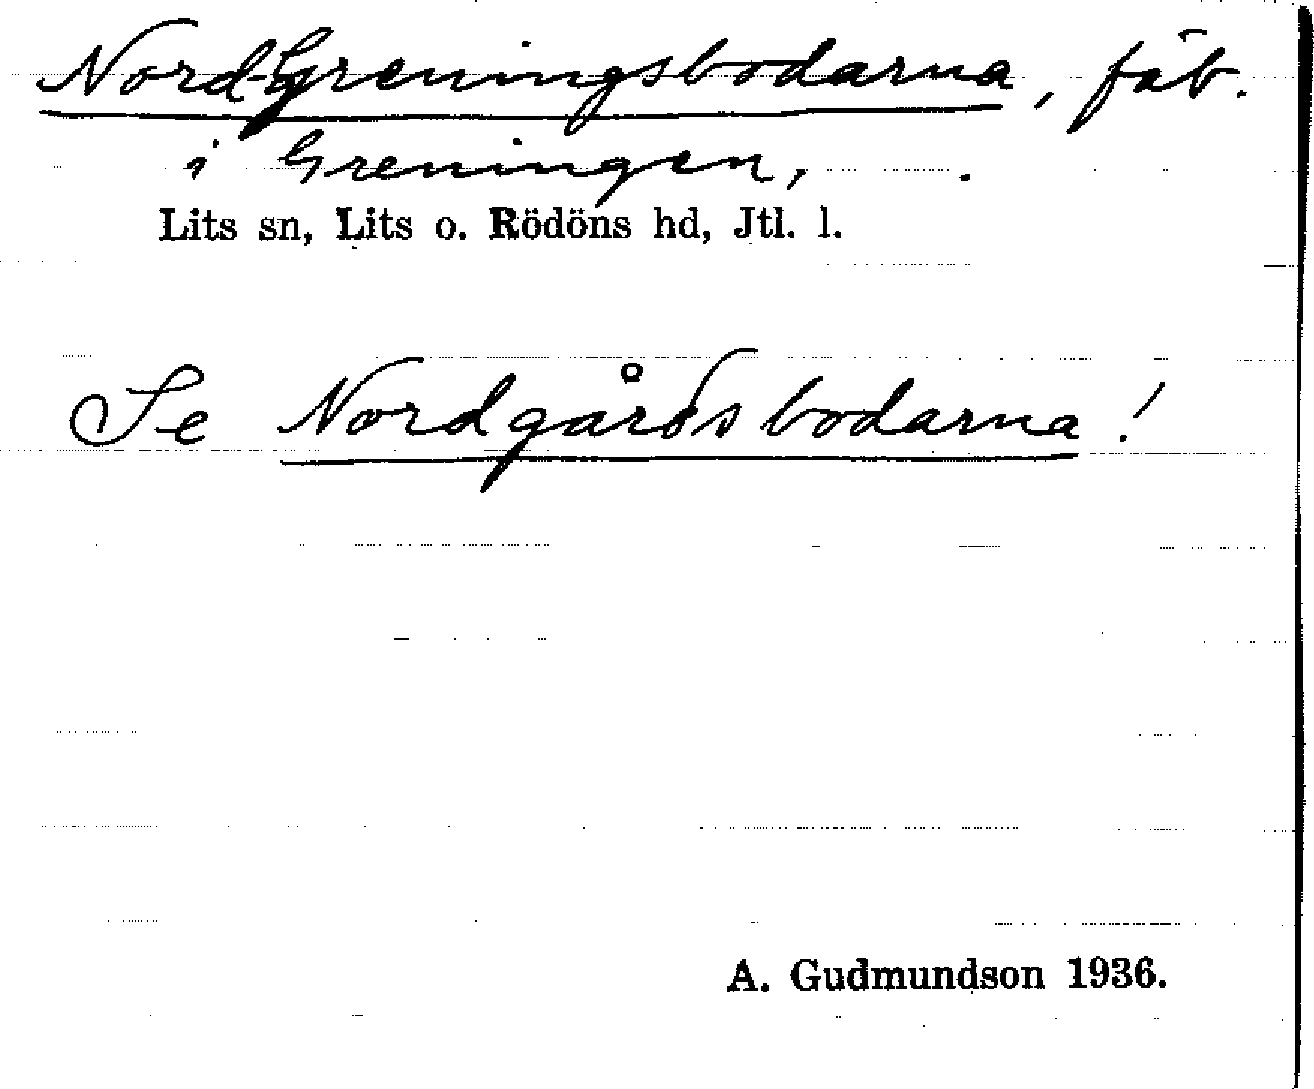 Nord-Greningsbodarna, fäb.
i Greningen,
Lits sn, Lits o. Rödöns hd, Jtl. l.
Se Nordgårdsbodarna!
A. Gudmundson 1936.